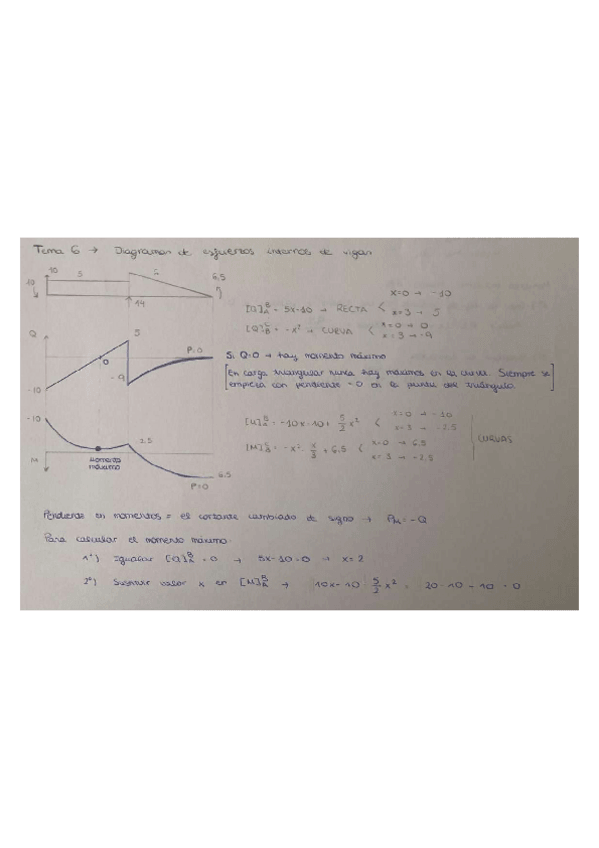 Tema 6 → Diagramas de esfuerzos internos de vigas
10 5 6 6,5
10 14
[Q]ᴮ_A = 5x-10 → RECTA < x=0 → -10
x=3 → 5
[Q]ᶜ_B = -x² → CURVA < x=0 → 0
x=3 → -9
Q 5 P=0
0 -9
-10
Si Q=0 → hay momento máximo
[En carga triangular nunca hay máximos en la curva. Siempre se
empieza con pendiente =0 en la punta del triángulo.]
-10
[M]ᴮ_A = -10x-10+ 5/2 x² < x=0 → -10
x=3 → -2.5
[M]ᶜ_B = -x². x/3 + 6,5 < x=0 → 6.5
x=3 → -2.5
CURVAS
2.5
M momento
máximo
6.5
P=0
Pendiente en momentos = el cortante cambiado de signo → Pₘ = -Q
Para calcular el momento máximo:
1º) Igualar [Q]ᴮ_A = 0 → 5x-10=0 → x=2
2º) Sustituir valor x en [M]ᴮ_A → 10x-10 5/2 x² = 20-10-10=0